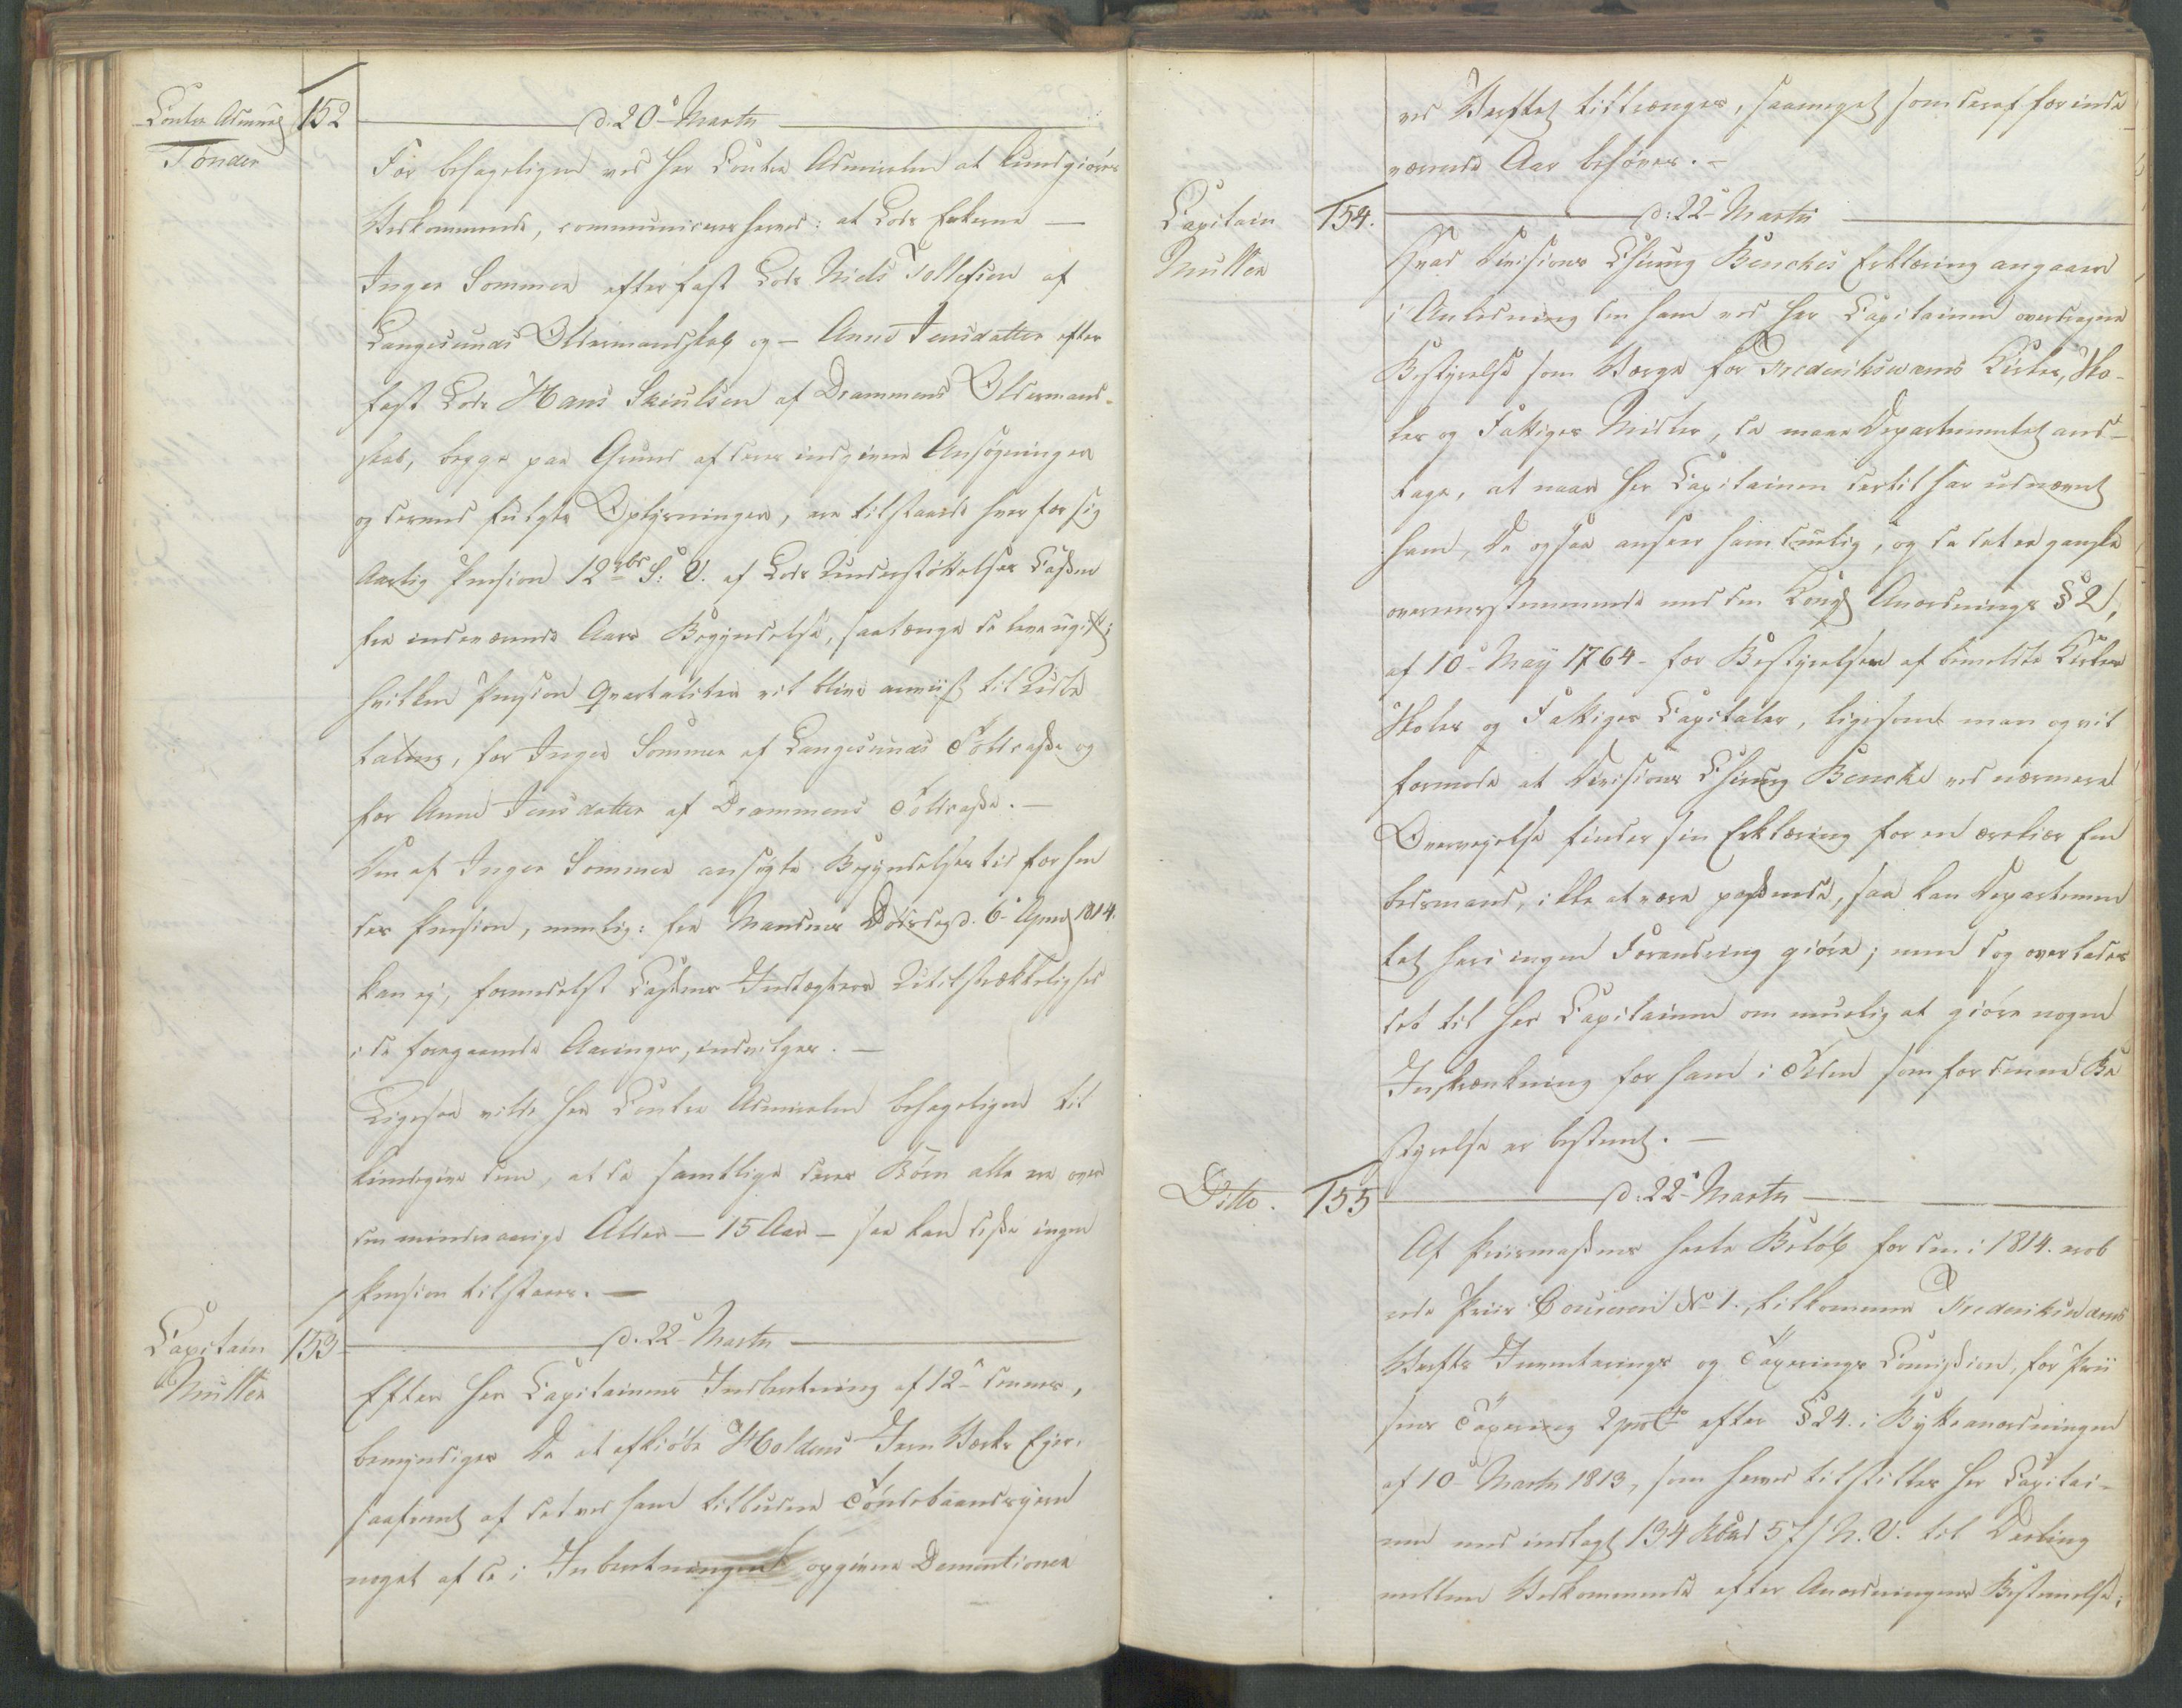 Contra Admiral
Tönder
152
d: 20de Martii
For behageligen ved Hr Contra Admiralen at kundgiøres
Vedkommende, communiceres herved: at Lods Enkerne —
Inger Sommer efter fast Lods Niels Tollefsen af
Langesunds Oldermandskab og - Anne Jensdatter efter
fast Lods Hans Skiulsen af Drammens Oldermand-
skab, begge paa Grund af deres indgivne Ansøgninger
og dermed fulgte Oplysninger, ere tilstaaede hver for sig
Aarlig Pension 12 rbd S: V. af Lods Understøttelses Casßen
fra indeværende Aars Begyndelse, saalænge de leve ugift;
hvilken Pension Qvartaliter vil blive anviist til Udbe
taling, for Inger Sommer af Langesunds Toldcasße og
for Anne Jensdatter af Drammens Toldcasße. —
Den af Inger Sommer ansøgte Begyndelses tid for hen
des Pension, nemlig: fra Mandens Dødsdag d. 6te April 1814.
kan ej, formedelst Casßens Indtægters Utilstrækkelighed
i de foregaaende Aaringer, indvilges. —
Ligesaa vilde Her Contra Admiralen behageligen til
kiendegive dem, at da samtlige deres Børn alle ere over
den mindreaarige Alder — 15 Aar — saa kan disße ingen
Pension tilstaaes. —
Capitain
Müller
153
d. 22de Martii
Efter Her Capitainens Indberetning af 12te dennes,
bemyndiges De at afkiøbe Holdens Jern Værks Ejer,
saafremt af det ved ham tilbudne Töndebaandsjern
noget af de i Inberetningen opgivne Dementioner
ved Værftet tiltrænges, saameget som deraf for inde
værende Aar behøves. —
Capitain
Müller
154.
d: 22de Martii
Hvad Divisions Chirurg Benckes Erklæring angaaer
i Anledning den ham ved Her Capitainen overdragne
Bestyrelse som Værge for Frederiksværns Kirkes, Sko-
les og Fattiges Midler, da maae Departementet and-
tage, at naar Her Capitainen dertil har udnævnt
ham, De ogsaa anseer ham duelig, og da det er ganske
overeensstemmende med den Kongl Anordnings § 2,
af 10de May 1764 - for Bestyrelsen af bemeldte Kirkes
Skoles og Fattiges Capitaler, ligesom man og vil
formode at Divisions Chirurg Bencke ved nærmere
Overvejelse finder sin Erklæring for en ærekiær Em
bedsmand, ikke at være pasßende, saa kan Departemen
tet heri ingen Forandring giøre; men dog overlades
det til Her Capitainen om muelig at giøre nogen
Indskrænkning for ham i Tiden som for denne Be
styrelse er bestemt. —
Ditto.
155
d: 22de Martii
Af Priismasßens heele Beløb for den i 1814. erob
rede Priis Courieri No 1., tilkommer Frederiksværns
Værfts Inventerings og Taxerings Comisßion, for Prii
sens Taxering 2 proCto efter § 24. i Bytteanordningen
af 10de Martii 1813, som herved tilstilles Her Capitai-
nen med indlagt 134 Rbd 57 s N. V. til Deeling
mellem Vedkommende efter Anordningens Bestemelse,